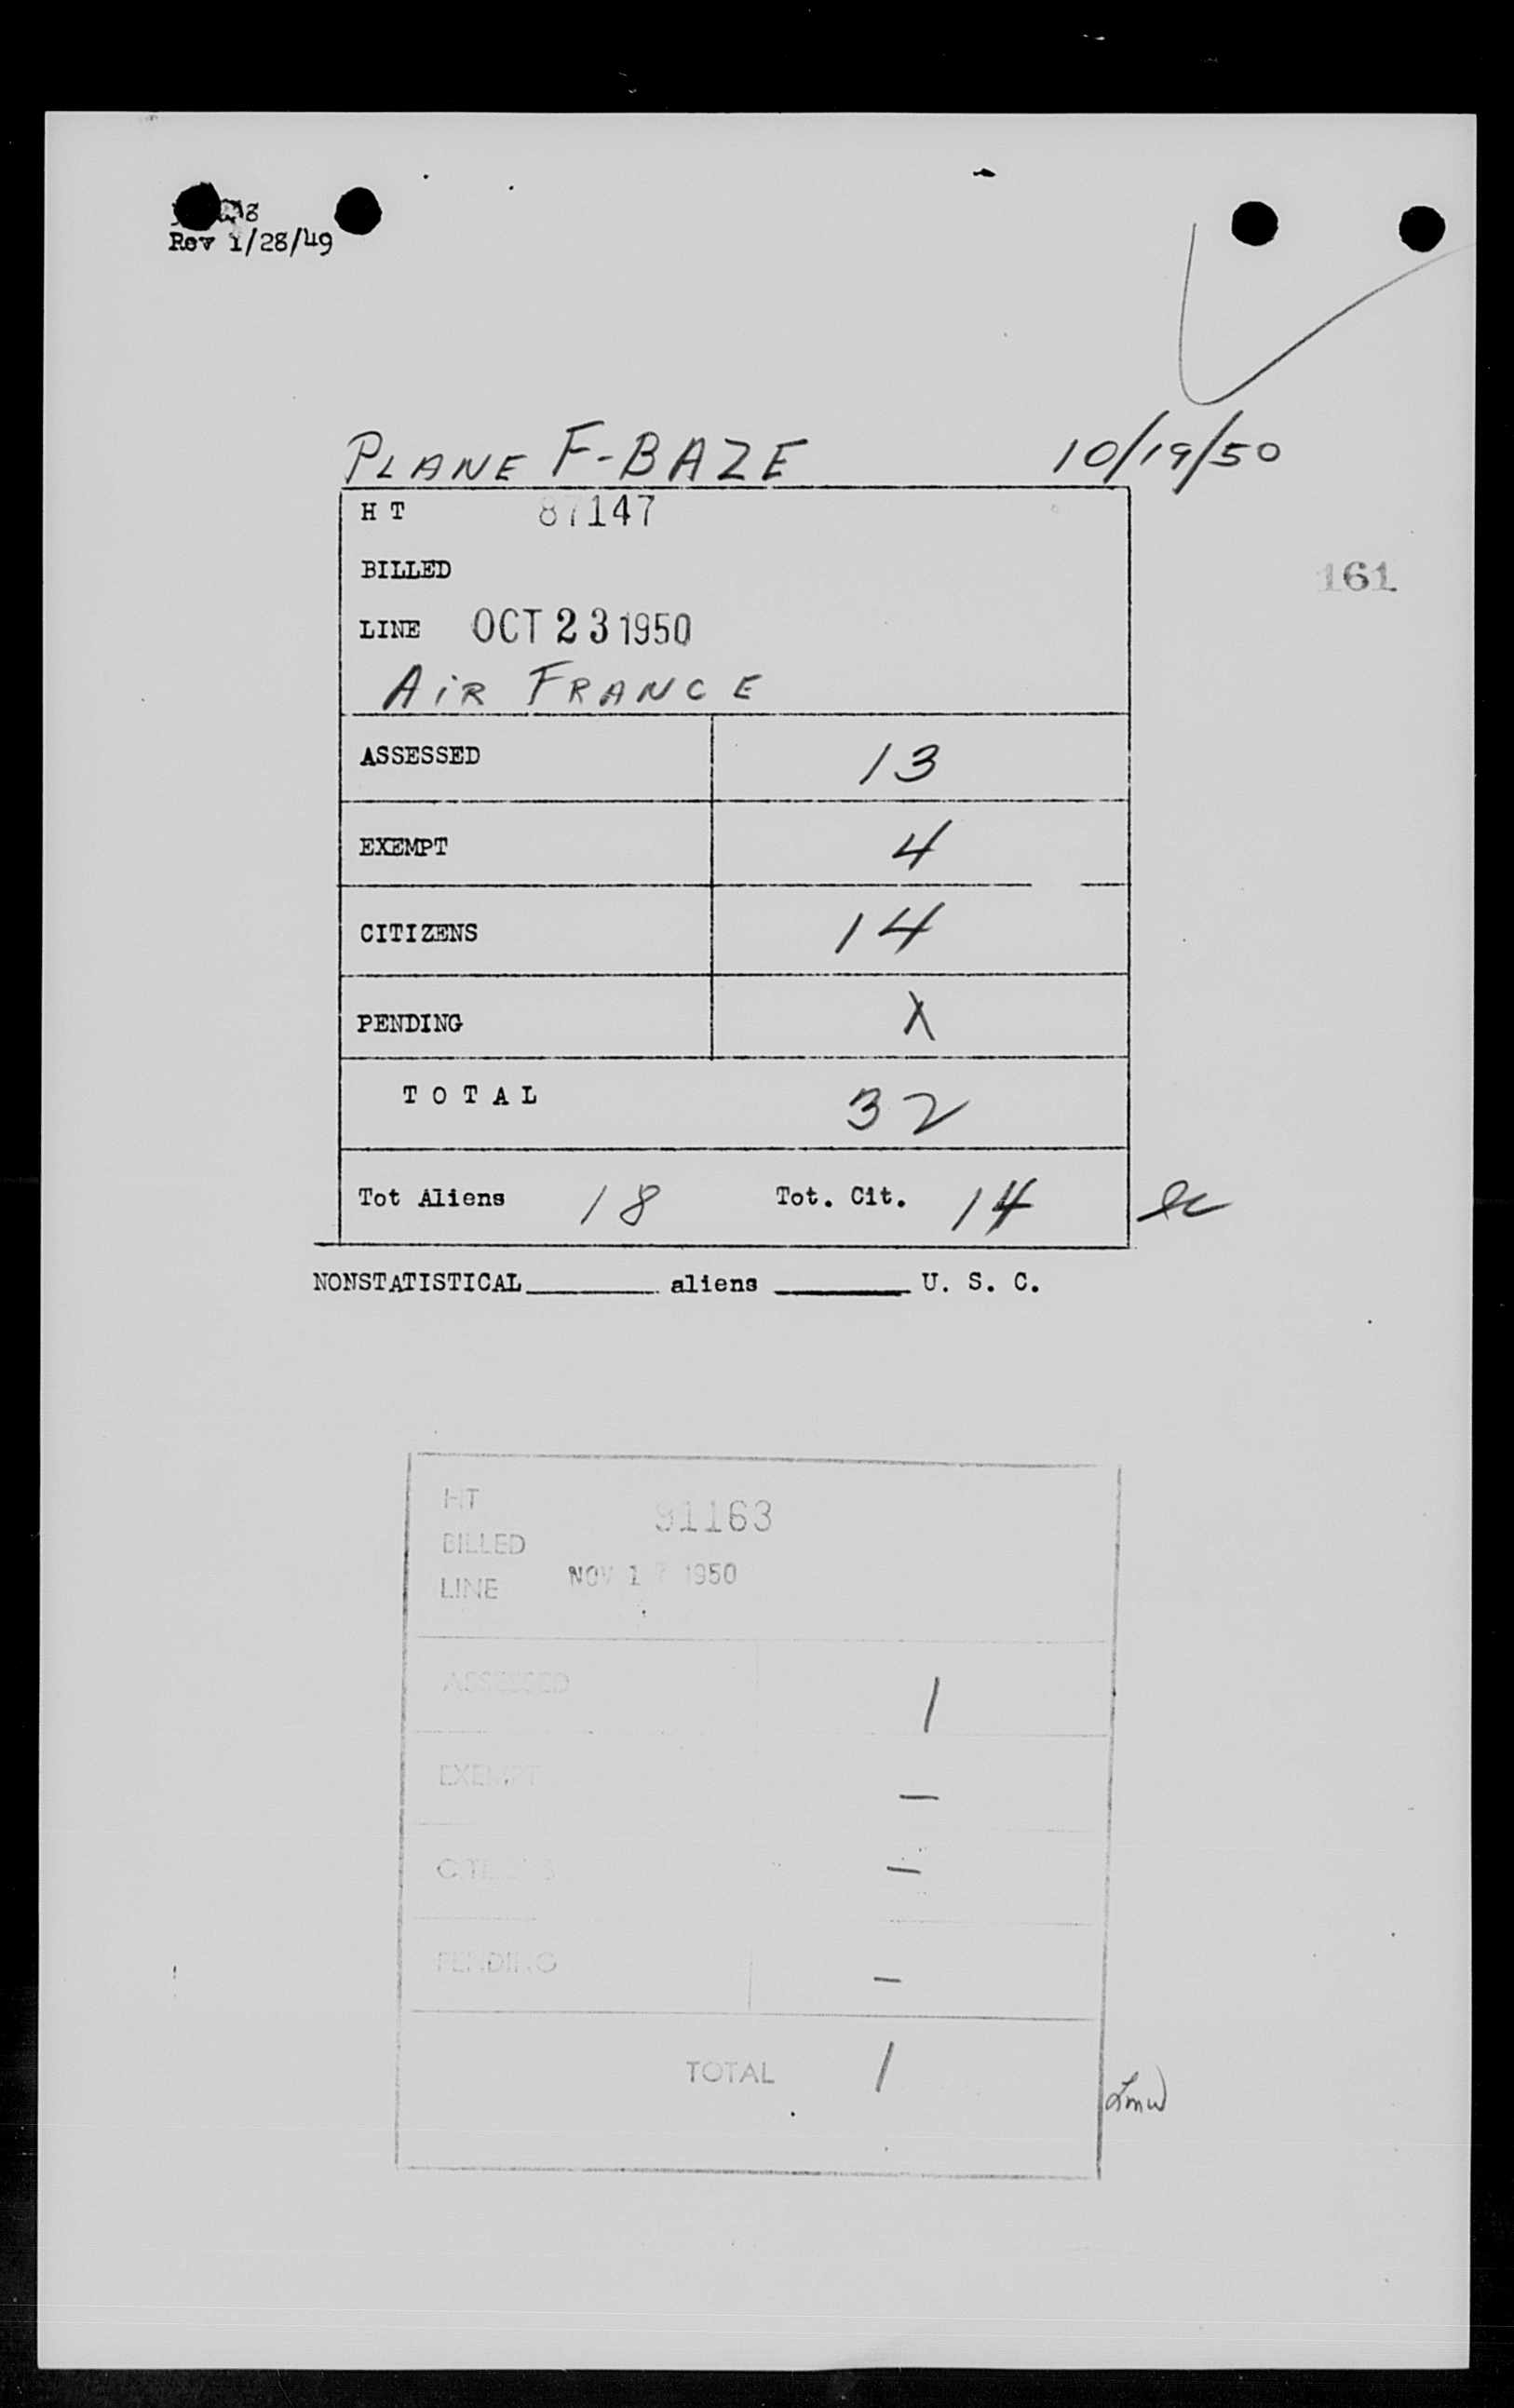 Rev 1/28/49
PLANE F-BAZE 10/19/50
H T 87147
BILLED
161
LINE OCT 23 1950
AIR FRANCE
ASSESSED 13
EXEMPT 4
CITIZENS 14
PENDING X
T O T A L 32
Tot Aliens 18 Tot. Cit. 14
NONSTATISTICAL aliens U. S. C.
HT 91163
BILLED
LINE NOV 1 1950
ASSESSED 1
EXEMPT —
CITIZENS —
PENDING —
TOTAL 1